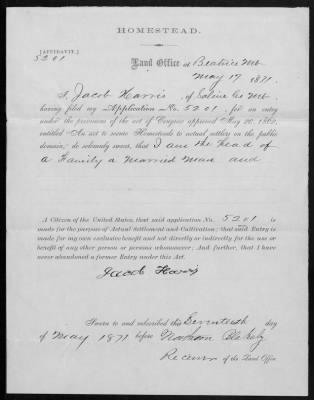 HOMESTEAD.
[AFFIDAVIT.]
5201
Land Office at Beatrice Neb
May 17 1871.
I, Jacob Harris, of Saline Co Neb,
having filed my Application No. 5201, for an entry
under the provisions of the act of Congress approved May 20, 1862,
entitled "An act to secure Homesteads to actual settlers on the public
domain," do solemnly swear, that I am the head of
a Family a Married Man and
A Citizen of the United States, that said application No. 5201 is
made for the purpose of Actual Settlement and Cultivation; that said Entry is
made for my own exclusive benefit and not directly or indirectly for the use or
benefit of any other person or persons whomsoever; And further, that I have
never abandoned a former Entry under this Act.
Jacob Harris
Sworn to and subscribed this Seventeenth day
of May 1871 before Nathan Blakely
Receiver of the Land Office.